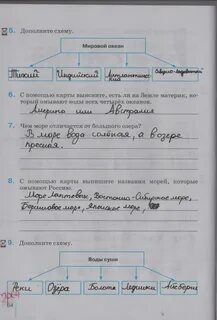 5. Дополните схему.
Мировой океан
Тихий Индийский Атлантический Северно-Ледовитый
6. С помощью карты выясните, есть ли на Земле материк, который омывают воды всех четырёх океанов.
Америка или Австралия
7. Чем море отличается от большого озера?
В море вода солёная, а в озере
пресная.
8. С помощью карты выпишите названия морей, которые
омывают Россию.
Море Лаптевых, Восточно-Сибирское море,
Берингово море, Японское море,
9. Дополните схему.
Воды суши
Реки Озёра Болота Ледники Айсберги
64